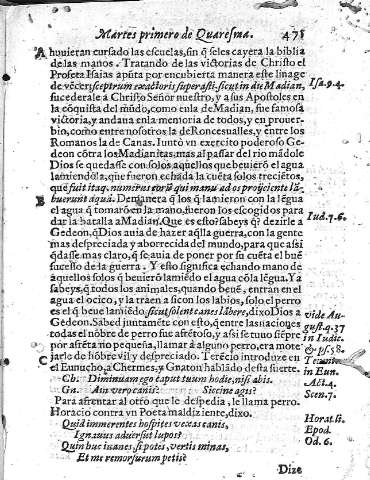 Martes primero de Quaresma. 471
A huuieran cursado las escuelas, sin q̃ se les cayera la biblia
de las manos. Tratando de las victorias de Christo el
Profeta Isaias apũta por encubierta manera este linage
de vẽcer, sceptrum exactoris superasti, sicut in die Madian,
sucederale à Christo Señor nuestro, y a sus Apostoles en
la cõquista del mũdo, como en la de Madian, fue famosa
victoria, y andaua en la memoria de todos, y en prouer-
bio, como entre nosotros la de Roncesualles, y entre los
Romanos la de Canas. Iuntò vn exercito poderoso Ge-
deon cõtra los Madianitas, mas al passar del rio mãdole
Dios se quedasse con solos aquellos que beuiessẽ el agua
lamiendola, que fueron echada la cuẽta solos treciẽtos,
que fuit itaq. numerus eorũ qui manu ad os proijciente lã-
B buerunt aquã. De manera q̃ los q̃ lamieron con la lẽgua
el agua q̃ tomarõ en la mano, fueron los escogidos para
dar la batalla a Madian. Que es esto? sabeys q̃ dezirle a
Gedeon, q̃ Dios auia de hazer aq̃lla guerra, con la gente
mas despreciada y aborrecida del mundo, para que assi
q̃dasse mas claro, q̃ se auia de poner por su cuẽta el buẽ
sucesso de la guerra. Y esto significa echando mano de
aquellos solos q̃ beuierõ lamiẽdo el agua cõ la lẽgua. Ya
sabeys, q̃ todos los animales, quando beuẽ, entran en el
agua el ocico, y la traen a si con los labios, solo el perro
es el q̃ beue lamiẽdo, sicut solent canes lãbere, dixo Dios a
Gedeon. Sabed juntamẽte con esto, q̃ entre las naciones
todas el nõbre de perro fue afrẽtoso, y assi se tuuo siẽpre
por afrẽta no pequeña, llamar à alguno perro, era mote
C jarle de hõbre vil y despreciado. Terẽcio introduze en
el Eunucho, a Chermes, y Gnaton hablãdo desta suerte.
Ch. Diminuam ego caput tuum hodie, nisi abis.
Gn. Ain vero canis? Siccine agis?
Para afrentar al otro que le despedia, le llama perro.
Horacio contra vn Poeta maldiziente, dixo.
Quid immerentes hospites vexas canis,
Ignauus aduersus lupos?
Quin huc inanes, si potes, vertis minas,
Et me remorsurum petis?
Dize
Isa. 9. 4.
Iud. 7. 6.
vide Au-
gust. q. 37
in Iudic.
& ps. 58.
in Eun.
Act. 4.
Scen. 7.
Horat. li.
Epod.
Od. 6.